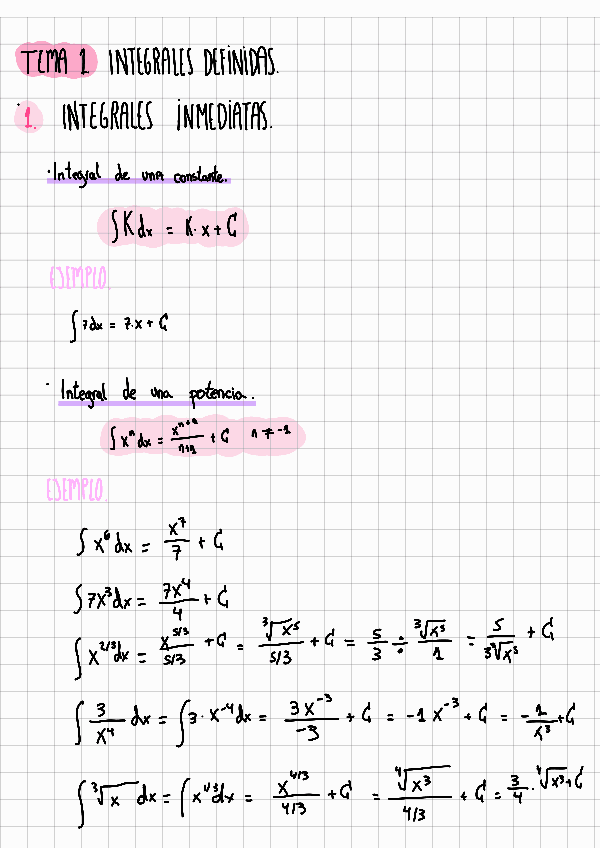 TEMA 1 INTEGRALES DEFINIDAS.
1. INTEGRALES INMEDIATAS.
· Integral de una constante.
∫K dx = K·x + C
EJEMPLO.
∫7dx = 7·x + C
· Integral de una potencia.
∫xⁿ dx = xⁿ⁺¹/(n+1) + C n ≠ -1
EJEMPLO.
∫x⁶dx = x⁷/7 + C
∫7x³dx = 7x⁴/4 + C
∫x^(2/3)dx = x^(5/3)/(5/3) + C = ∛(x⁵)/(5/3) + C = 5/3 ÷ ∛(x⁵)/1 = 5/(3∛(x⁵)) + C
∫3/x⁴ dx = ∫3·x⁻⁴dx = 3x⁻³/-3 + C = -1x⁻³ + C = -1/x³ + C
∫∛x dx = ∫x^(1/3)dx = x^(4/3)/(4/3) + C = ∜(x³)/(4/3) + C = 3/4·∜(x³) + C